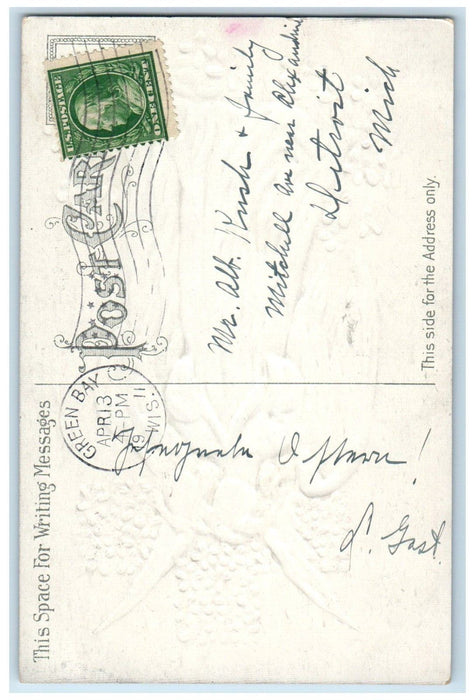 This Space For Writing Messages
POST CARD
U.S. POSTAGE
ONE CENT
GREEN BAY
WIS.
APR 13
4 - PM
1911
Ostern!
L. Gast.
Mr. Alb. Krush & family
Mitchell Ave near Alexandrine
Detroit
Mich
This side for the Address only.